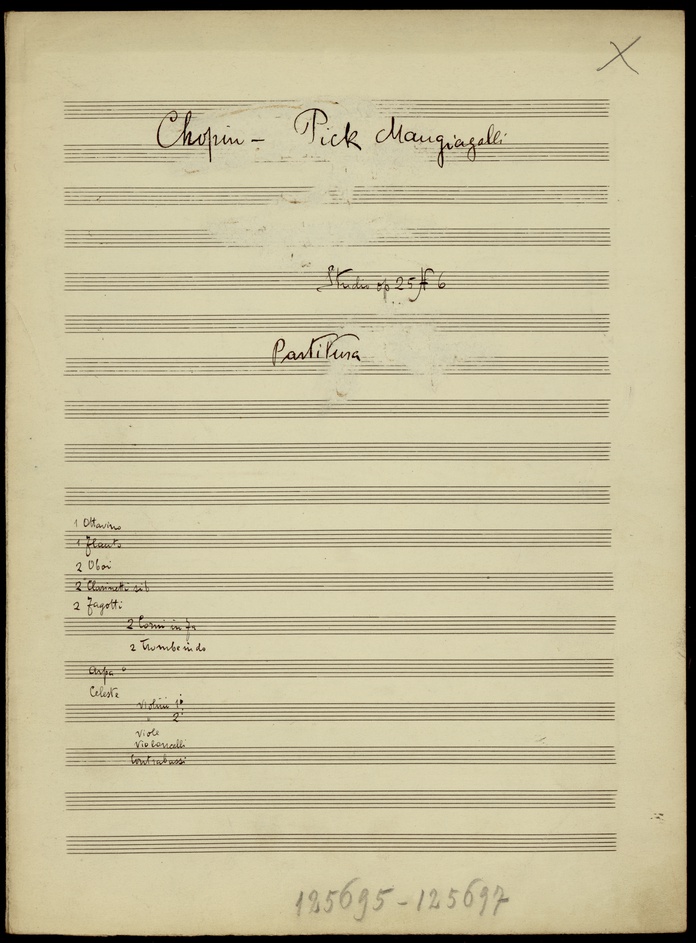 X
Chopin - Pick Mangiagalli
Studio op 25 N 6
Partitura
1 Ottavino
1 Flauto
2 Oboi
2 Clarinetti sib
2 Fagotti
2 Corni in Fa
2 Trombe in do
Arpa
Celesta
Violini 1i
" 2i
Viole
Violoncelli
Contrabassi
125695-125697